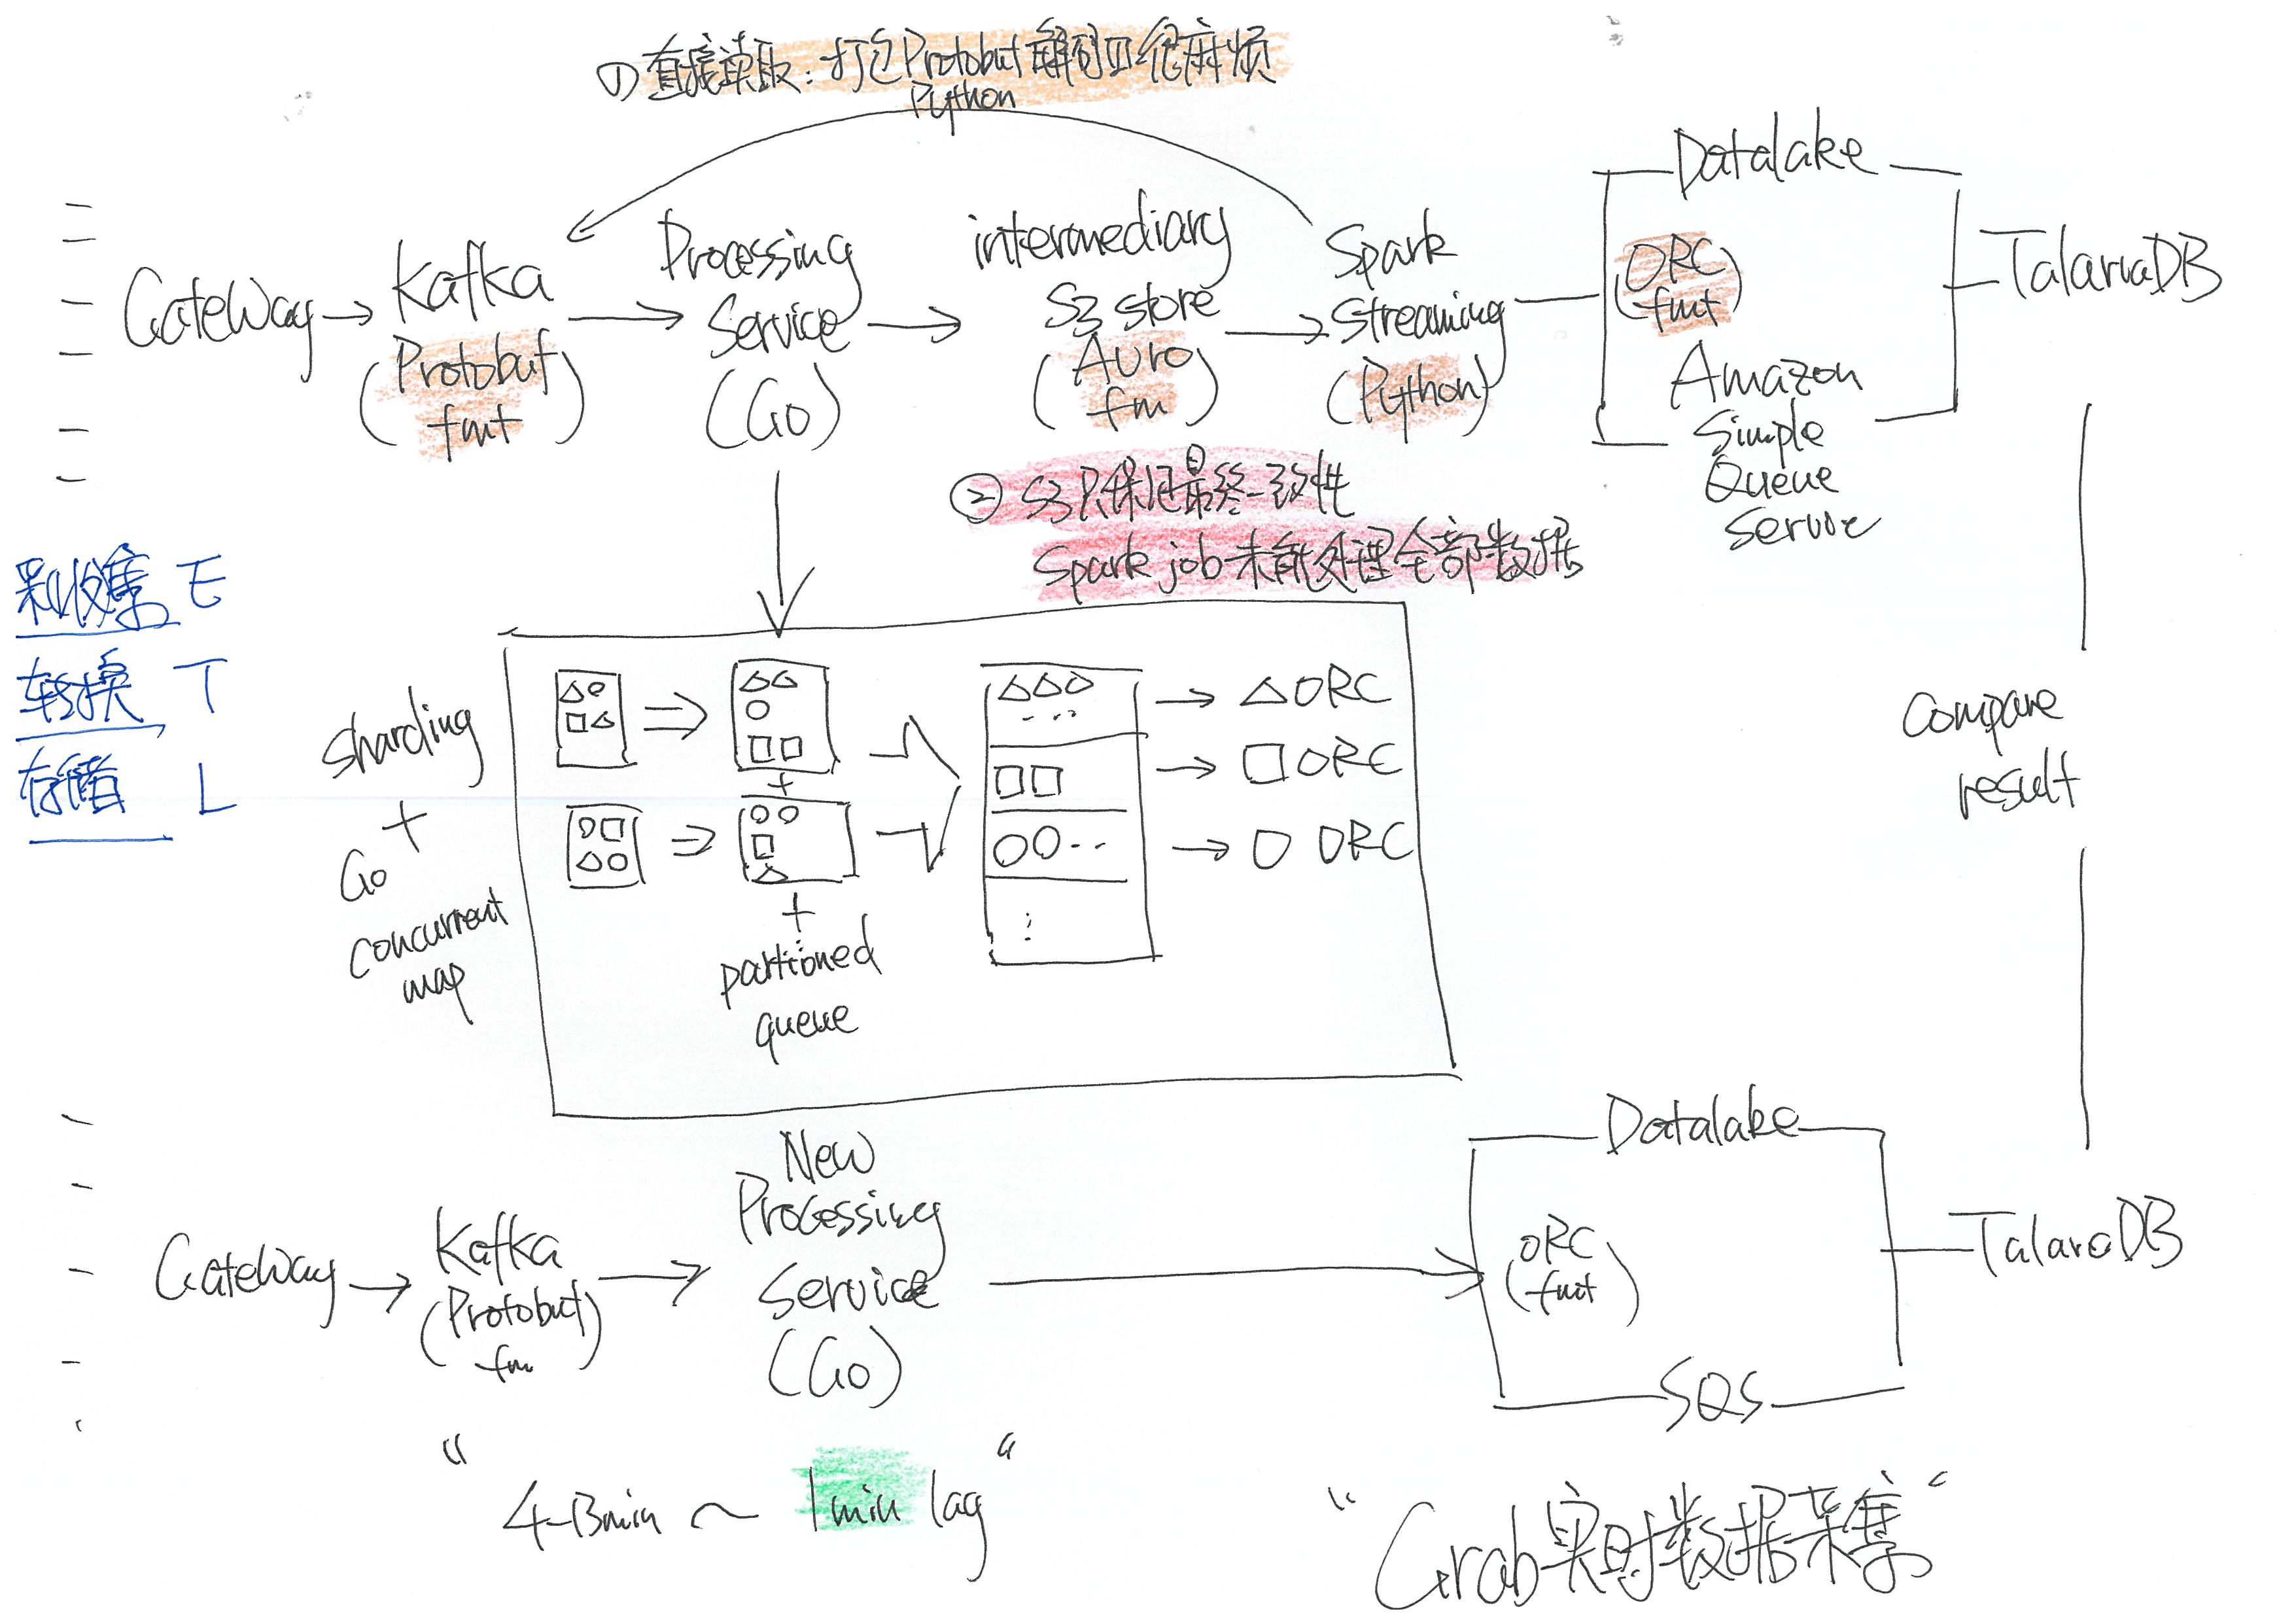 ① 直接读取：打包Protobuf 解包 很麻烦
Python
Gateway
Kafka
(Protobuf
fmt)
Processing
Service
(Go)
intermediary
S3 store
(Avro
fm)
Spark
Streaming
(Python)
Datalake
(ORC
fmt)
Amazon
Simple
Queue
Service
TalariaDB
② S3只保证最终一致性
Spark job 未能处理全部数据
采收集 E
转换 T
存储 L
sharding
+
Go
concurrent
map
+
+
partioned
queue
ORC
ORC
ORC
compare
result
Gateway
Kafka
(Protobuf
fm)
New
Processing
Service
(Go)
Datalake
ORC
(fmt)
SQS
TalaraDB
"4-13min ~ 1min lag"
"Grab实时数据采集"